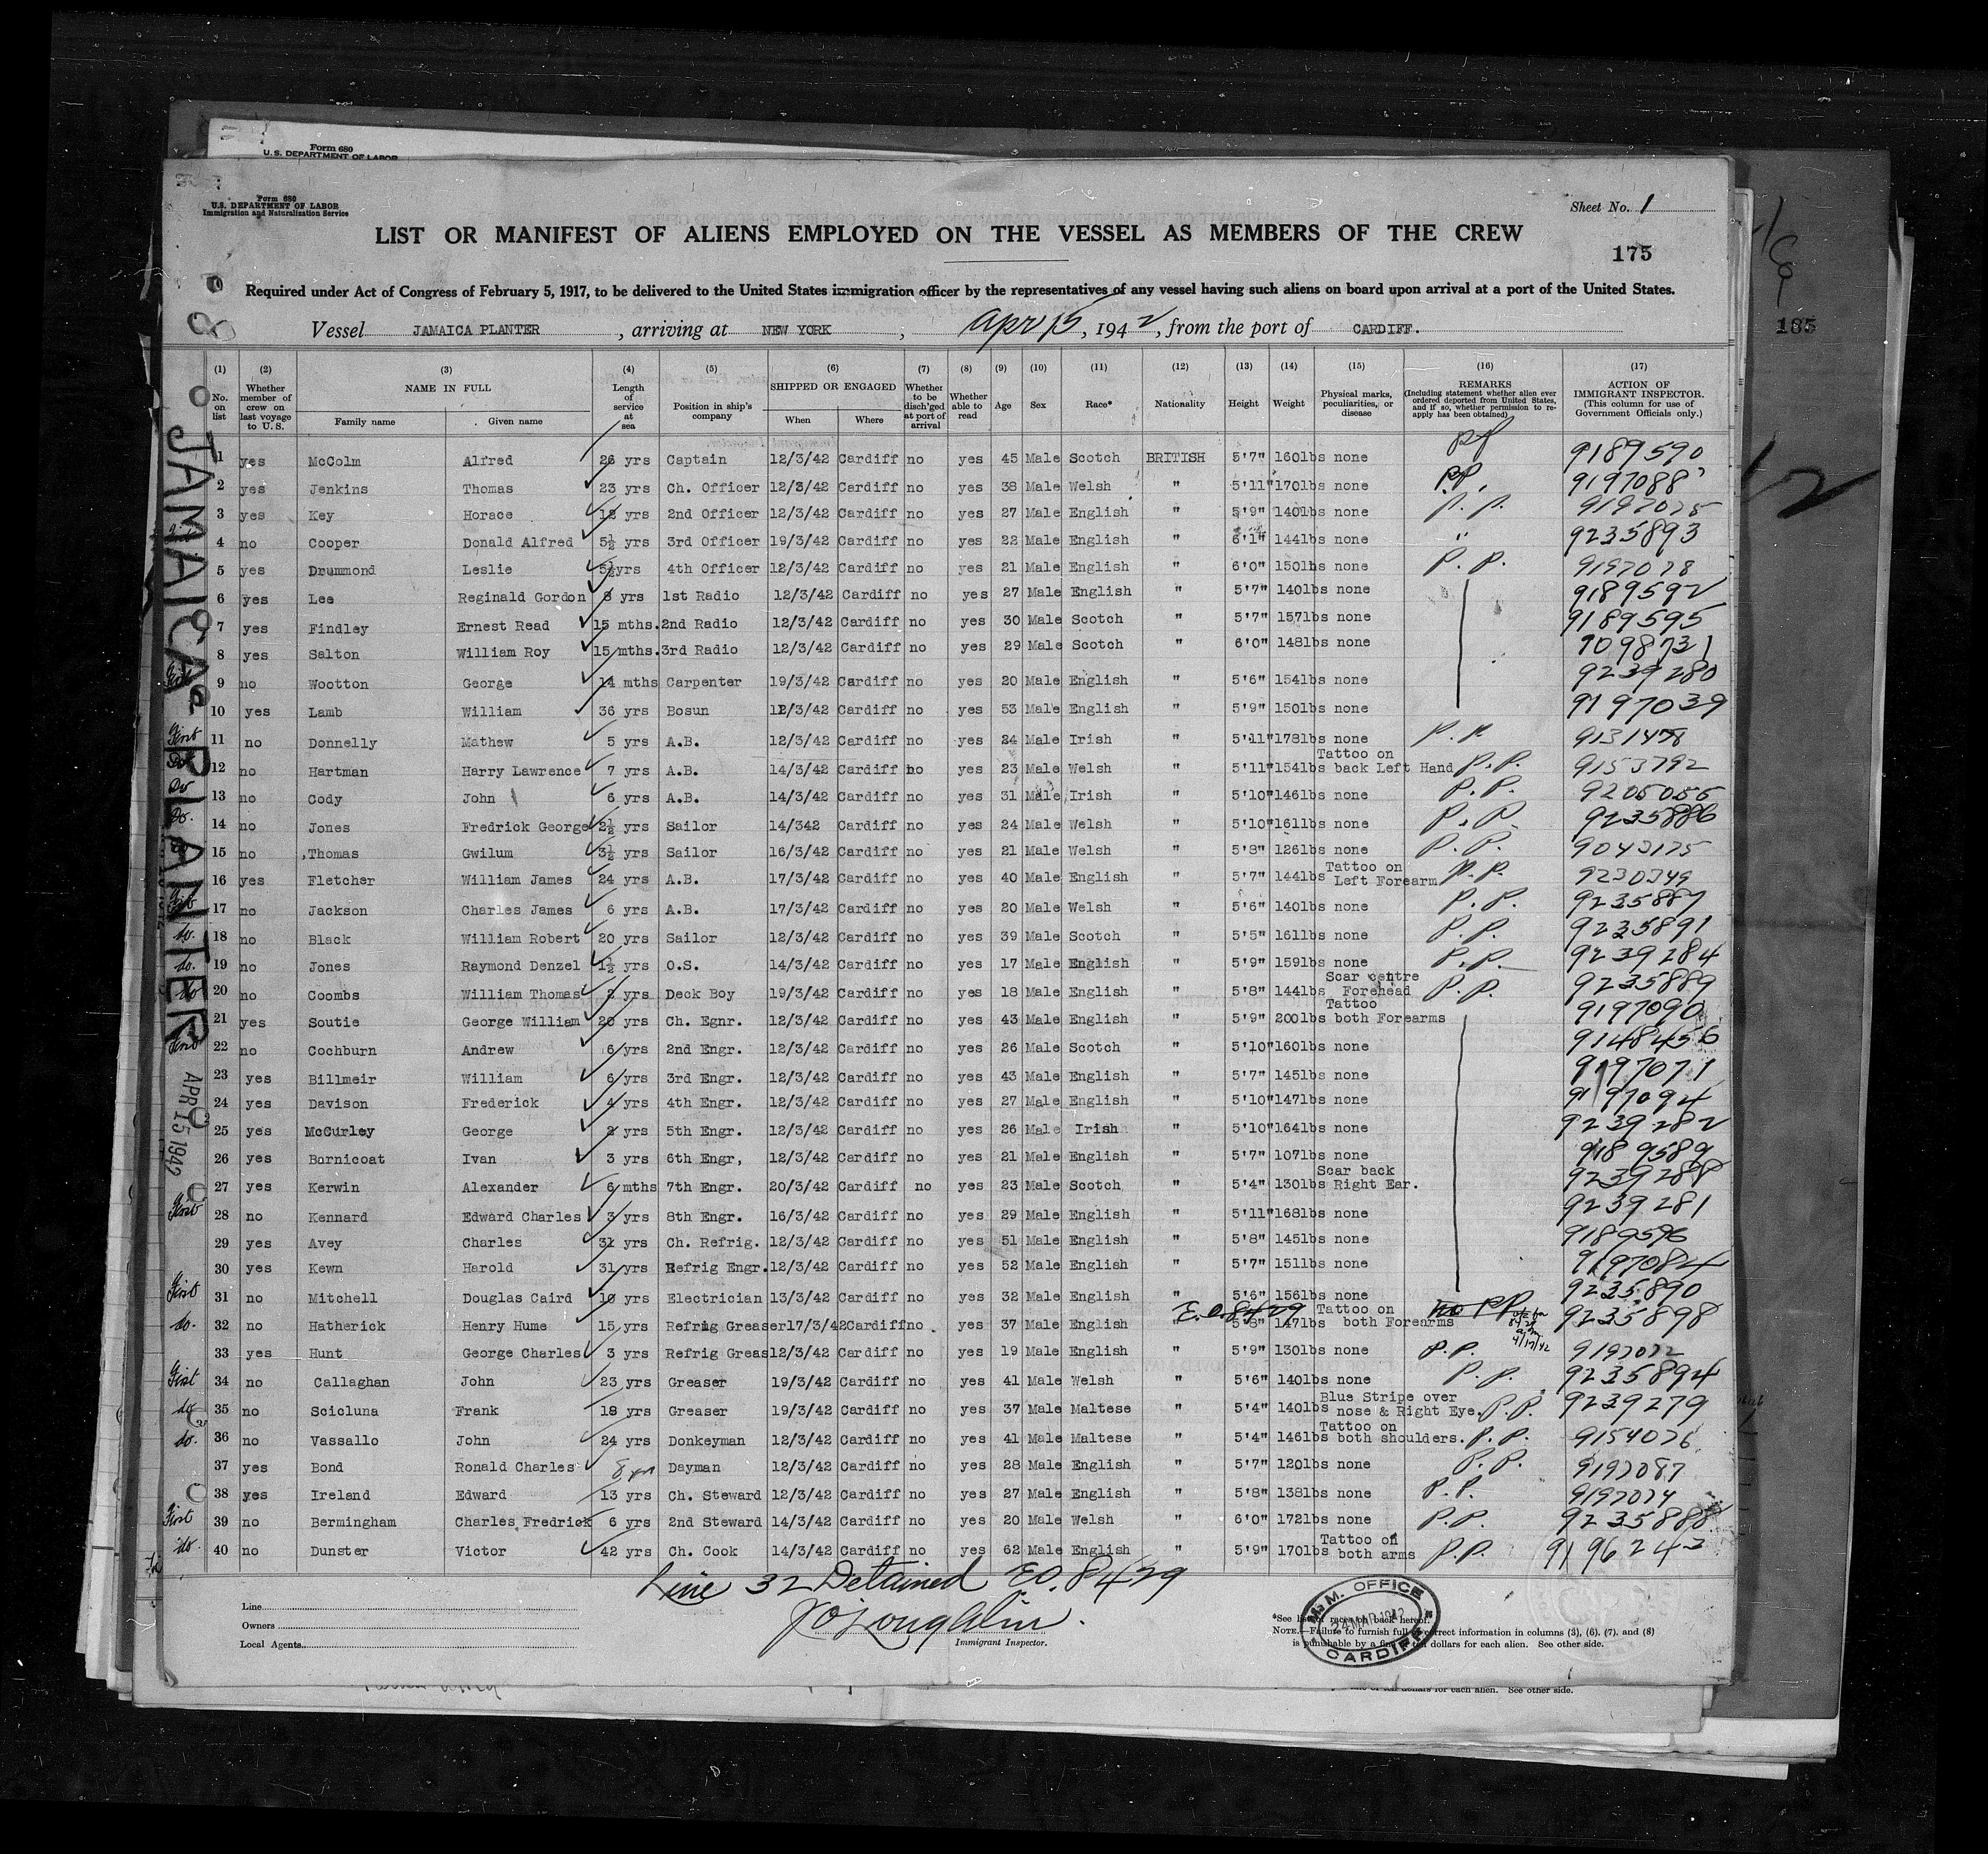 Form 680
U.S. DEPARTMENT OF LABOR
Form 680
U.S. DEPARTMENT OF LABOR
Immigration and Naturalization Service
Sheet No. 1
LIST OR MANIFEST OF ALIENS EMPLOYED ON THE VESSEL AS MEMBERS OF THE CREW
175
Required under Act of Congress of February 5, 1917, to be delivered to the United States immigration officer by the representatives of any vessel having such aliens on board upon arrival at a port of the United States.
Vessel JAMAICA PLANTER, arriving at NEW YORK, Apr 15, 1942, from the port of CARDIFF.
185
(1) (2) (3) (4) (5) (6) (7) (8) (9) (10) (11) (12) (13) (14) (15) (16) (17)
No. on list
Whether member of crew on last voyage to U.S.
NAME IN FULL
Family name
Given name
Length of service at sea
Position in ship's company
SHIPPED OR ENGAGED
When
Where
Whether to be disch'ged at port of arrival
Whether able to read
Age
Sex
Race*
Nationality
Height
Weight
Physical marks, peculiarities, or disease
REMARKS
(Including statement whether alien ever ordered deported from United States, and if so, whether permission to reapply has been obtained)
ACTION OF IMMIGRANT INSPECTOR.
(This column for use of Government Officials only.)
1 yes McColm Alfred 26 yrs Captain 12/3/42 Cardiff no yes 45 Male Scotch BRITISH 5'7" 160lbs none pp 9189590
2 yes Jenkins Thomas 23 yrs Ch. Officer 12/3/42 Cardiff no yes 38 Male Welsh " 5'11" 170lbs none P.P. 9197088
3 yes Key Horace 12 yrs 2nd Officer 12/3/42 Cardiff no yes 27 Male English " 5'9" 140lbs none P.P. 9197075
4 no Cooper Donald Alfred 5½ yrs 3rd Officer 19/3/42 Cardiff no yes 22 Male English " 6'1" 144lbs none " 9235893
5 yes Drummond Leslie 5½yrs 4th Officer 12/3/42 Cardiff no yes 21 Male English " 6'0" 150lbs none P.P. 9197078
6 yes Lee Reginald Gordon 8 yrs 1st Radio 12/3/42 Cardiff no yes 27 Male English " 5'7" 140lbs none 9189592
7 yes Findley Ernest Read 15 mths. 2nd Radio 12/3/42 Cardiff no yes 30 Male Scotch " 5'7" 157lbs none 9189595
8 yes Salton William Roy 15 mths. 3rd Radio 12/3/42 Cardiff no yes 29 Male Scotch " 6'0" 148lbs none 7098731
9 no Wootton George 14 mths Carpenter 19/3/42 Cardiff no yes 20 Male English " 5'6" 154lbs none 9239280
10 yes Lamb William 36 yrs Bosun 12/3/42 Cardiff no yes 53 Male English " 5'9" 150lbs none 9197039
First 11 no Donnelly Mathew 5 yrs A.B. 12/3/42 Cardiff no yes 24 Male Irish " 5'11" 178lbs none P.P. 9131478
Do 12 no Hartman Harry Lawrence 7 yrs A.B. 14/3/42 Cardiff no yes 23 Male Welsh " 5'11" 154lbs Tattoo on back Left Hand P.P. 9153792
Do 13 no Cody John 6 yrs A.B. 14/3/42 Cardiff no yes 31 Male Irish " 5'10" 146lbs none P.P. 9205055
Do. 14 no Jones Fredrick George 2½ yrs Sailor 14/342 Cardiff no yes 24 Male Welsh " 5'10" 161lbs none P.P. 9235886
15 no Thomas Gwilum 3½ yrs Sailor 16/3/42 Cardiff no yes 21 Male Welsh " 5'8" 126lbs none P.P. 9043175
16 yes Fletcher William James 24 yrs A.B. 17/3/42 Cardiff no yes 40 Male English " 5'7" 144lbs Tattoo on Left Forearm P.P. 9230349
17 no Jackson Charles James 6 yrs A.B. 17/3/42 Cardiff no yes 20 Male Welsh " 5'6" 140lbs none P.P. 9235887
do. 18 no Black William Robert 20 yrs Sailor 12/3/42 Cardiff no yes 39 Male Scotch " 5'5" 161lbs none P.P. 9235891
do. 19 no Jones Raymond Denzel 1½ yrs O.S. 14/3/42 Cardiff no yes 17 Male English " 5'9" 159lbs none P.P. 9239284
do 20 no Coombs William Thomas 2 yrs Deck Boy 19/3/42 Cardiff no yes 18 Male English " 5'8" 144lbs Scar centre Forehead P.P. 9235889
21 yes Soutie George William 20 yrs Ch. Egnr. 12/3/42 Cardiff no yes 43 Male English " 5'9" 200lbs Tattoo both Forearms 9197090
First 22 no Cochburn Andrew 6 yrs 2nd Engr. 12/3/42 Cardiff no yes 26 Male Scotch " 5'10" 160lbs none 9148456
23 yes Billmeir William 6 yrs 3rd Engr. 12/3/42 Cardiff no yes 43 Male English " 5'7" 145lbs none 9197071
24 yes Davison Frederick 4 yrs 4th Engr. 12/3/42 Cardiff no yes 27 Male English " 5'10" 147lbs none 9197094
25 yes McCurley George 2 yrs 5th Engr. 12/3/42 Cardiff no yes 26 Male Irish " 5'10" 164lbs none 9239282
26 yes Bornicoat Ivan 3 yrs 6th Engr, 12/3/42 Cardiff no yes 21 Male English " 5'7" 107lbs none 9189589
27 yes Kerwin Alexander 6 mths 7th Engr. 20/3/42 Cardiff no yes 23 Male Scotch " 5'4" 130lbs Scar back Right Ear. 9239288
First 28 no Kennard Edward Charles 3 yrs 8th Engr. 16/3/42 Cardiff no yes 29 Male English " 5'11" 168lbs none 9239281
29 yes Avey Charles 31 yrs Ch. Refrig. 12/3/42 Cardiff no yes 51 Male English " 5'8" 145lbs none 9189596
30 yes Kewn Harold 31 yrs Refrig Engr. 12/3/42 Cardiff no yes 52 Male English " 5'7" 151lbs none 9197084
First 31 no Mitchell Douglas Caird 10 yrs Electrician 13/3/42 Cardiff no yes 32 Male English " 5'6" 156lbs none 9235890
do. 32 no Hatherick Henry Hume 15 yrs Refrig Greaser 17/3/42 Cardiff no yes 37 Male English E.O. 8429 " 5'8" 147lbs Tattoo on both Forearms no PP 4/17/42 9235898
33 yes Hunt George Charles 3 yrs Refrig Greas 12/3/42 Cardiff no yes 19 Male English " 5'9" 130lbs none P.P. 9197072
First 34 no Callaghan John 23 yrs Greaser 19/3/42 Cardiff no yes 41 Male Welsh " 5'6" 140lbs none P.P. 9235894
do 35 no Scicluna Frank 18 yrs Greaser 19/3/42 Cardiff no yes 37 Male Maltese " 5'4" 140lbs Blue Stripe over nose & Right Eye. P.P. 9239279
do. 36 no Vassallo John 24 yrs Donkeyman 12/3/42 Cardiff no yes 41 Male Maltese " 5'4" 146lbs Tattoo on both shoulders. P.P. 9154076
37 yes Bond Ronald Charles 8 yrs Dayman 12/3/42 Cardiff no yes 28 Male English " 5'7" 120lbs none P.P. 9197087
38 yes Ireland Edward 13 yrs Ch. Steward 12/3/42 Cardiff no yes 27 Male English " 5'8" 138lbs none P.P. 9197074
First 39 no Bermingham Charles Fredrick 6 yrs 2nd Steward 14/3/42 Cardiff no yes 20 Male Welsh " 6'0" 172lbs none P.P. 9235888
do. 40 no Dunster Victor 42 yrs Ch. Cook 14/3/42 Cardiff no yes 62 Male English " 5'9" 170lbs Tattoo on both arms P.P. 9196243
JAMAICA PLANTER
APR 15 1942
Line 32 Detained EO. 8429
J O'Loughlin.
Immigrant Inspector.
Line
Owners
Local Agents
M.M. OFFICE
24 MAR 1942
CARDIFF
*See list of races on back hereof.
NOTE.—Failure to furnish full or correct information in columns (3), (6), (7), and (8)
is punishable by a fine of ten dollars for each alien. See other side.
dollars for each alien. See other side.